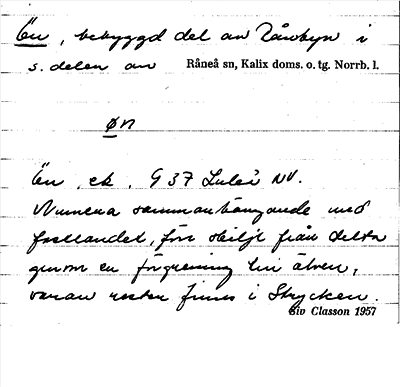 Ön, bebyggd del av Rånbyn i
s. delen av Råneå sn, Kalix doms. o. tg. Norrb. l.
øn
Ön, ek. G 37 Luleå NV.
Numera sammanhängande med
fastlandet, förr skiljt från detta
genom en förgrening till älven,
varav rester finns i Strycken.
Siv Classon 1957